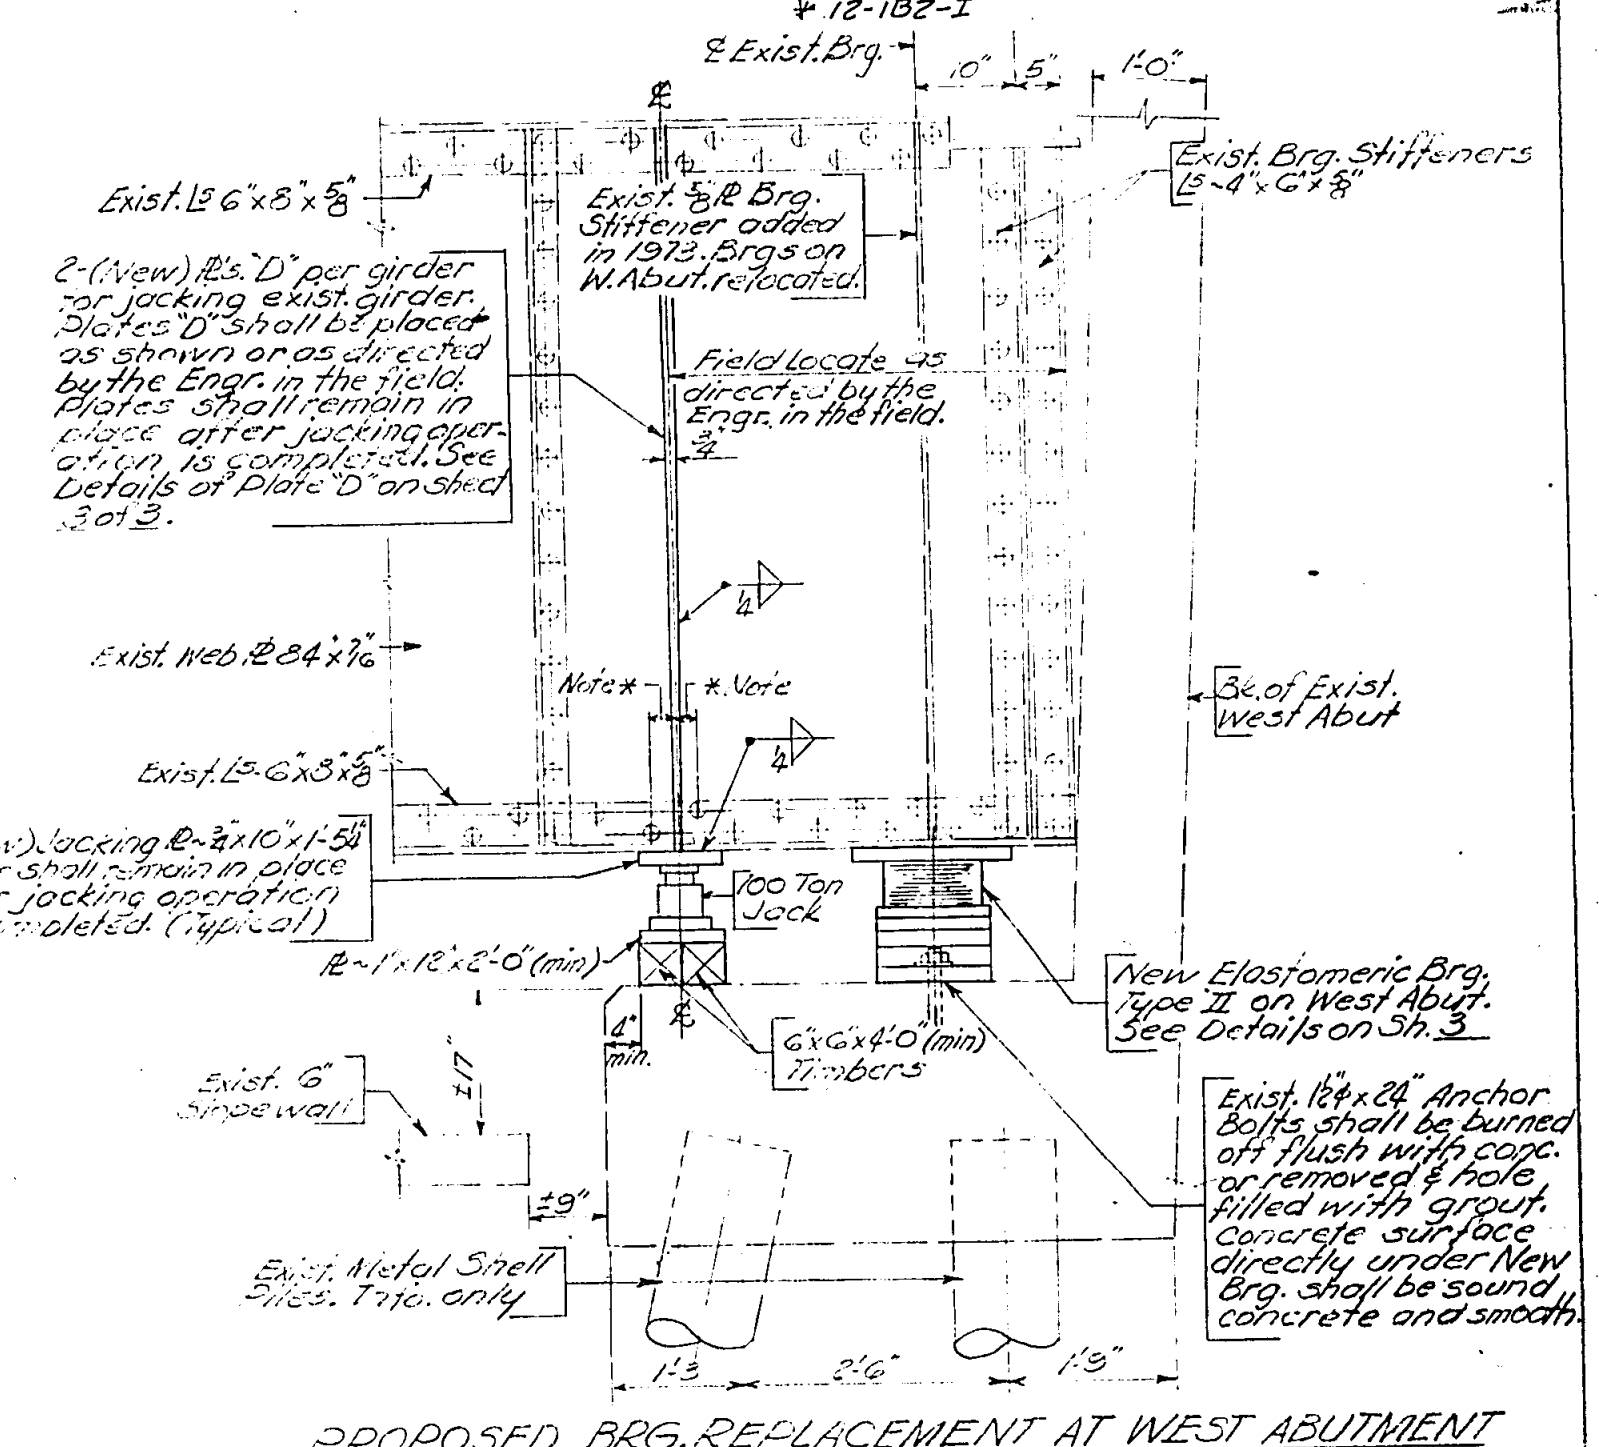 * 12-1B2-I
℄ Exist. Brg.
10"
5"
1'-0"
℄
Exist. Ls 6"x8"x5/8"
Exist. 5/8" ℙL Brg.
Stiffener added
in 1973. Brgs on
W. Abut. relocated.
Exist. Brg. Stiffeners
Ls~4"x6"x5/8"
2-(New) ℙLs. "D" per girder
for jacking exist. girder.
Plates "D" shall be placed
as shown or as directed
by the Engr. in the field.
Plates shall remain in
place after jacking oper-
ation is completed. See
Details of Plate "D" on sheet
3 of 3.
Field Locate as
directed by the
Engr. in the field.
3/4"
1/4
Exist. Web ℙL 84"x7/16"
Note*
*Note
Bk. of Exist.
West Abut
1/4
Exist. Ls-6"x8"x5/8"
w) Jacking ℙL~3/4"x10"x1'-5 1/4"
r shall remain in place
r jacking operation
mpleted. (Typical)
100 Ton
Jack
ℙL~1"x12"x2'-0" (min)
New Elastomeric Brg.
Type II on West Abut.
See Details on Sh. 3
4"
min.
℄
6"x6"x4'-0" (min)
Timbers
±17"
Exist. 6"
Slopewall
±9"
Exist. 1½"φx24" Anchor
Bolts shall be burned
off flush with conc.
or removed & hole
filled with grout.
Concrete surface
directly under New
Brg. shall be sound
concrete and smooth.
Exist. Metal Shell
Piles. Info. only
1'-3
2'-6"
1'-9"
PROPOSED BRG. REPLACEMENT AT WEST ABUTMENT